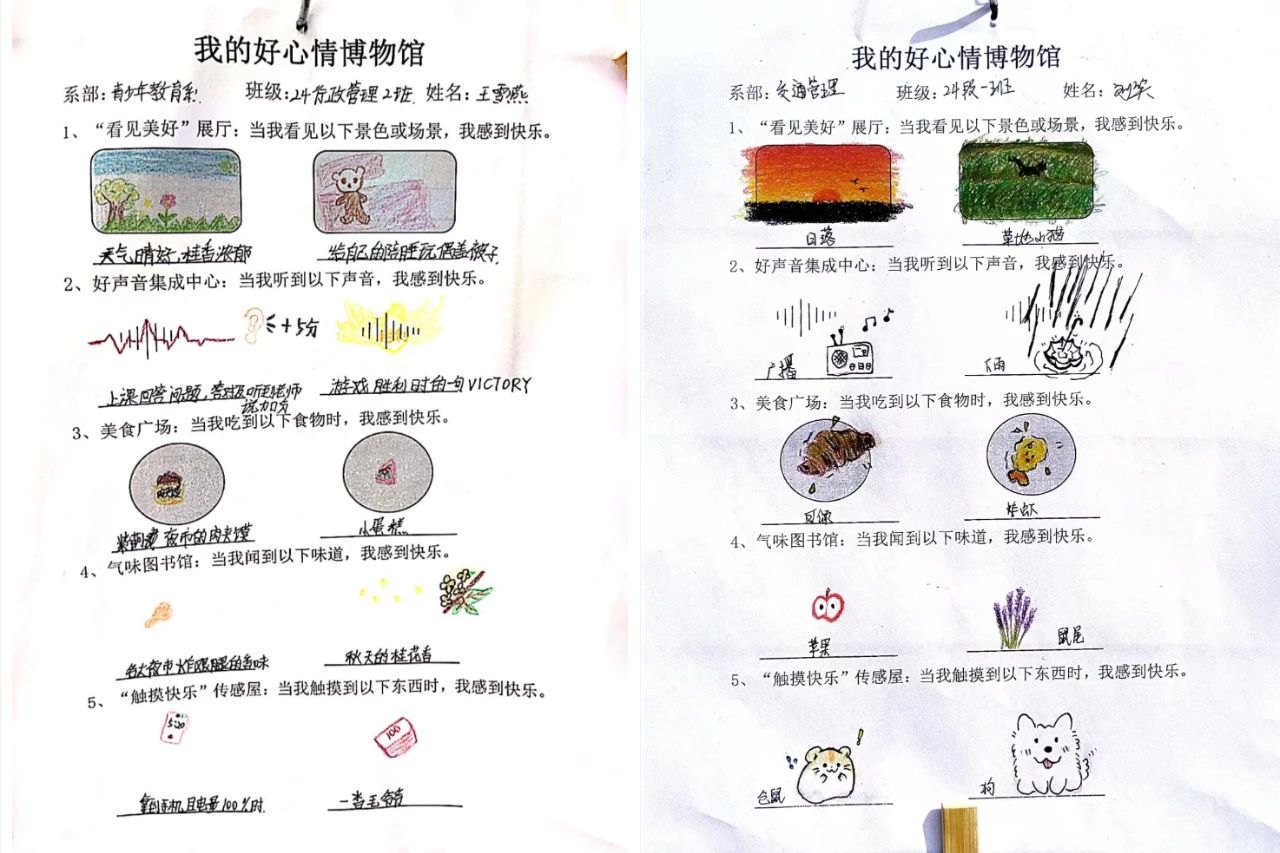 我的好心情博物馆
系部: 青少年教育系 班级: 24行政管理2班 姓名: 王雪燕
1、“看见美好”展厅: 当我看见以下景色或场景，我感到快乐。
天气晴好,桂香浓郁
给自己的陪睡玩偶盖被子
2、好声音集成中心: 当我听到以下声音，我感到快乐。
+5分
上课回答问题,答对及听到老师
说加分
游戏胜利时的一句VICTORY
3、美食广场: 当我吃到以下食物时，我感到快乐。
肉夹馍
夜市的肉夹馍
小蛋糕
4、气味图书馆: 当我闻到以下味道，我感到快乐。
夜市炸鸡腿的香味
秋天的桂花香
5、“触摸快乐”传感屋: 当我触摸到以下东西时，我感到快乐。
5:20
100
拿到手机且电量100%时
一沓毛爷爷
我的好心情博物馆
系部: 交通管理 班级: 24级一班 姓名:
1、“看见美好”展厅: 当我看见以下景色或场景，我感到快乐。
日落
草地小猫
2、好声音集成中心: 当我听到以下声音，我感到快乐。
广播
下雨
3、美食广场: 当我吃到以下食物时，我感到快乐。
可颂
炸虾
4、气味图书馆: 当我闻到以下味道，我感到快乐。
苹果
鼠尾
5、“触摸快乐”传感屋: 当我触摸到以下东西时，我感到快乐。
仓鼠
狗